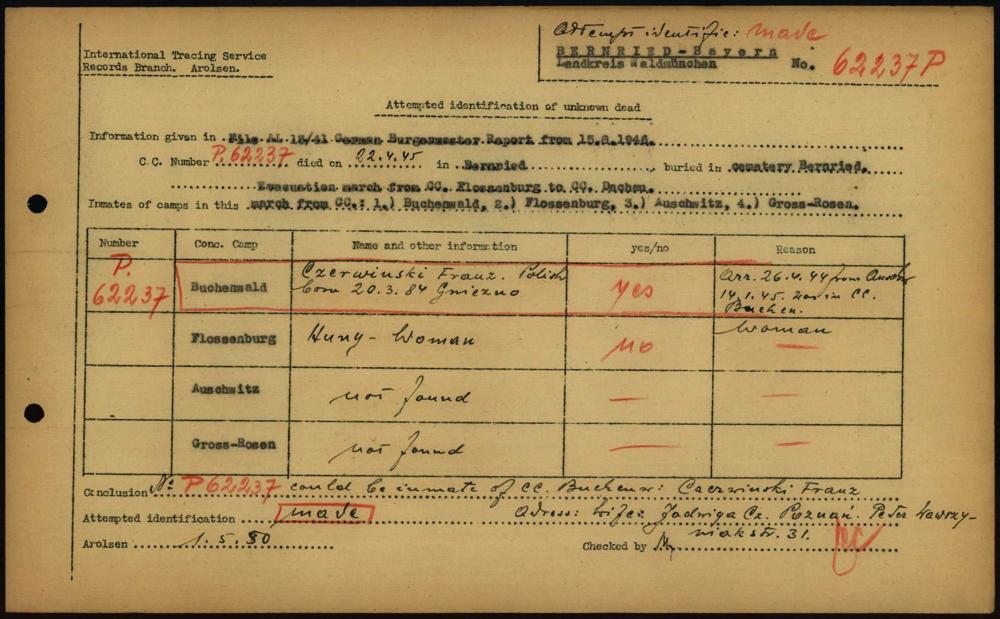 Attempt identific: made
International Tracing Service
Records Branch. Arolsen.
BERNRIED-Bayern
Landkreis Waldmünchen No. 62237 P
Attempted identification of unknown dead
Information given in File AL 13/41 German Burgermester Raport from 15.8.1946.
C.C. Number P. 62237 died on 22.4.45 in Bernried, buried in cematery Bernried.
Evacuation march from CC. Flossenburg to CC. Dachau.
Inmates of camps in this march from CC.: 1.) Buchenwald, 2.) Flossenburg, 3.) Auschwitz, 4.) Gross-Rosen.
Number Conc. Camp Name and other information yes/no Reason
P. 62237 Buchenwald Czerwinski Franz. Polish
born 20.3.84 Gniezno yes Arr. 26.4.44 from
14.1.45. was in CC.
Buchen.
Flossenburg Hung-Woman no Woman —
Auschwitz not found — —
Gross-Rosen not found — —
Conclusion No P 62237 could be inmate of CC. Buchenw: Czerwinski Franz
Attempted identification made Adress: wife: Jadwiga Cz. Poznań. Peter Wawrzy-
niakstr. 31.
Arolsen 1.5.50 Checked by